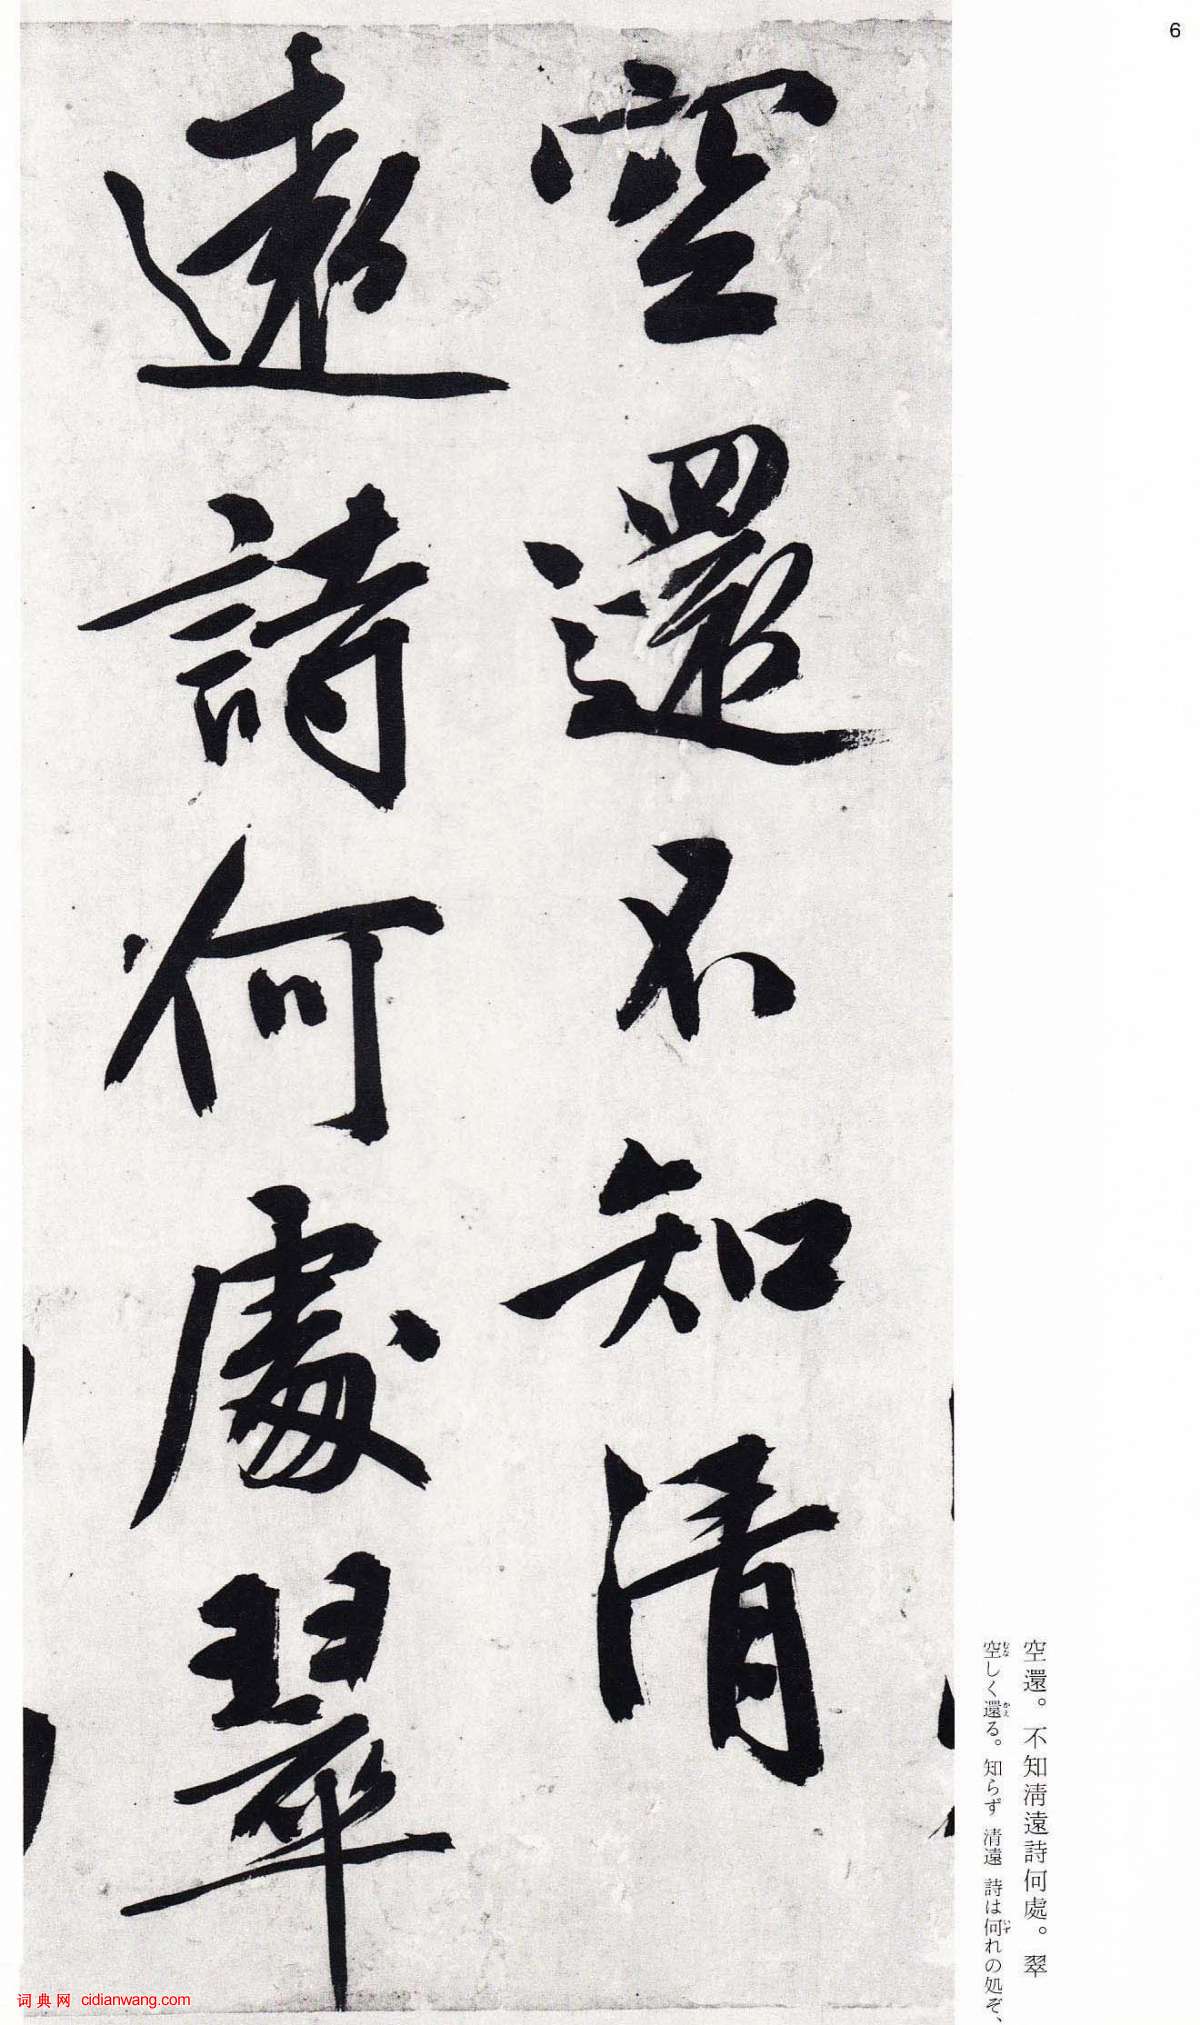 6
空還不知清
遠詩何處翠
空還。不知淸遠詩何處。翠
空しく還る。知らず 清遠 詩は何れの処ぞ、
むな
かえ
いず
词典网 cidianwang.com